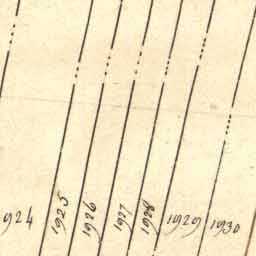 924
1925
1926
1927
1928
1929
1930